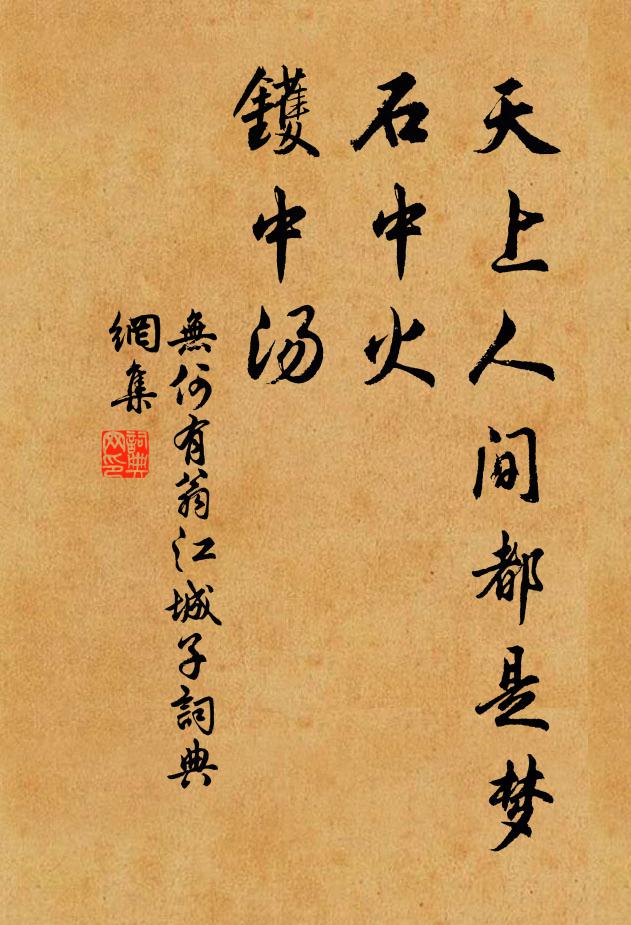 天上人间都是梦
石中火
鑊中汤
無何有翁江城子詞典
網集
詞典
网印